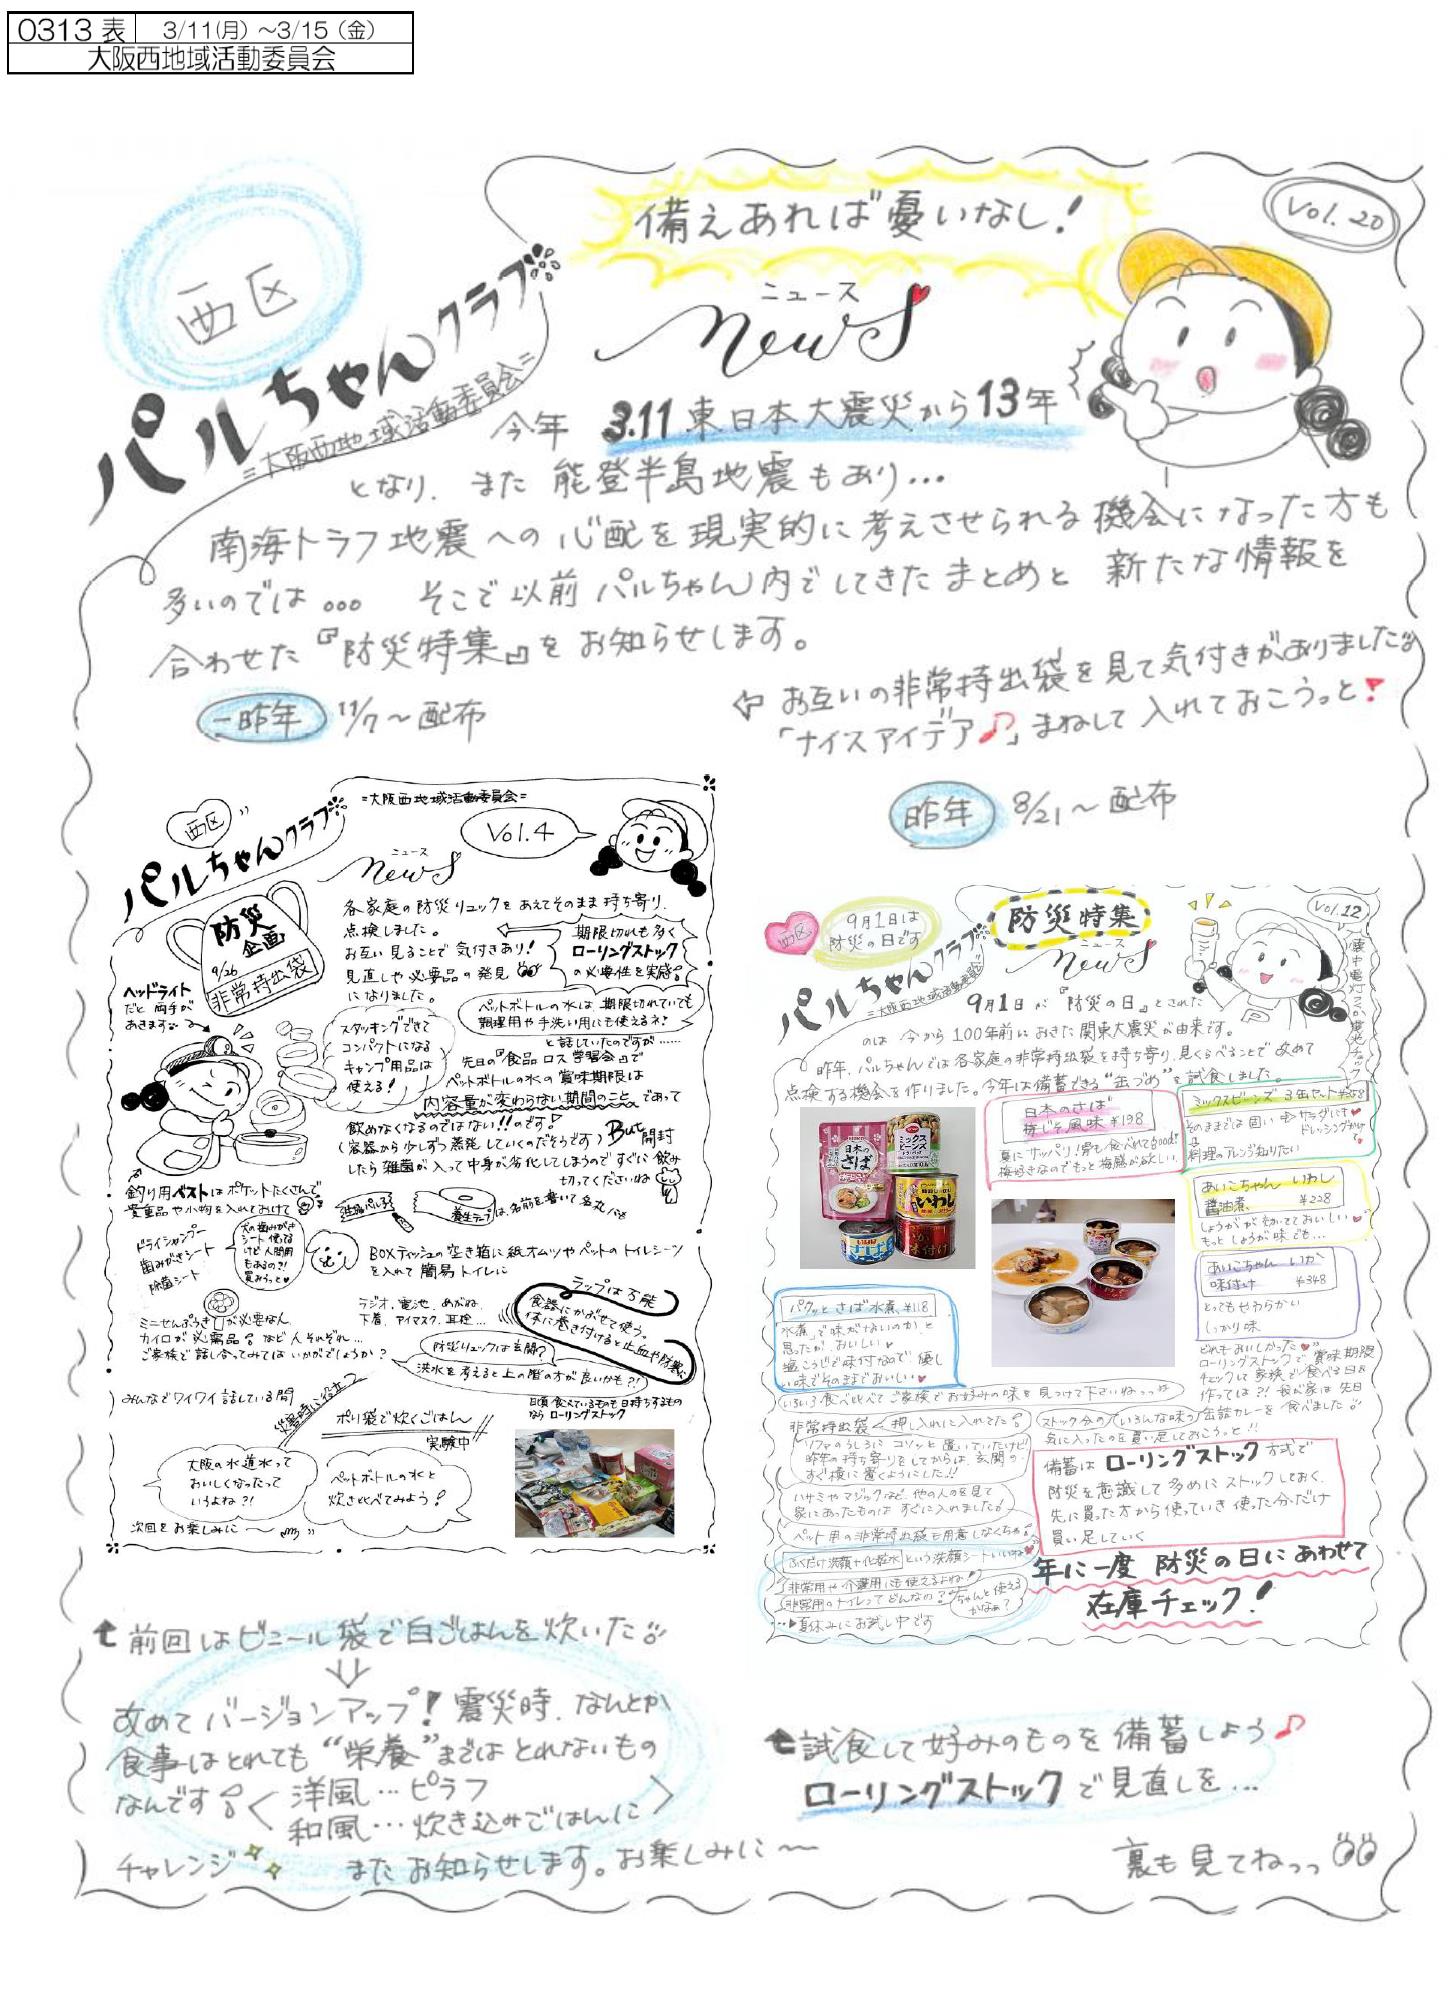 0313 表
3/11(月)~3/15(金)
大阪西地域活動委員会
西区
備えあれば憂いなし!
Vol.20
パルちゃんクラブ
=大阪西地域活動委員会=
ニュース
news
今年 3.11 東日本大震災から13年
となり、また 能登半島地震もあり…
南海トラフ地震への心配を現実的に考えさせられる機会になった方も
多いのでは 。。。 そこで以前パルちゃん内でしてきたまとめと 新たな情報を
合わせた『防災特集』をお知らせします。
一昨年 11/7~配布
お互いの非常持出袋を見て気付きがありました
「ナイスアイデア♪」まねして入れておこうっと!
昨年 8/21~配布
=大阪西地域活動委員会=
西区
パルちゃんクラブ
Vol.4
ニュース
news
防災
企画
9/26
非常持出袋
各家庭の防災リュックをあえてそのまま持ち寄り、
点検しました。
お互い見ることで気付きあり!
見直しや必要品の発見
になりました。
期限切れも多く
ローリングストック
の必要性を実感!
ヘッドライト
だと両手が
あきます
ペットボトルの水は、期限切れていても
調理用や手洗い用にも使えるネ!
と話していたのですが……
スタッキングできて
コンパクトになる
キャンプ用品は
使える!
先日の『食品ロス学習会』で
ペットボトルの水の賞味期限は
内容量が変わらない期間のことであって
飲めなくなるのではない!!のです!
(容器から少しずつ蒸発していくのだそうです) But 開封
したら雑菌が入って中身が劣化してしまうのですぐに飲み
切ってくださいね
釣り用ベストはポケットたくさんで
貴重品や小物を入れておけて
養生テープは、名前を書いて名札にも
ドライシャンプー
歯みがきシート
除菌シート
犬の歯みがき
シート使ってる
けど人間用
もあるの?!
買おうっと
BOXティッシュの空き箱に紙オムツやペットのトイレシーツ
を入れて簡易トイレに
ミニせんぷうきが必要な人
カイロが必需品!など人それぞれ…
ご家族で話し合ってみてはいかがでしょうか?
ラジオ、電池、めがね、
下着、アイマスク、耳栓…
ラップは万能
食器にかぶせて使う。
体に巻き付けると止血や防寒に
防災リュックは玄関?
洪水を考えると上の階の方が良いかも?!
みんなでワイワイ話している間
災害時に役立つ
ポリ袋で炊くごはん
実験中
日頃食べているものも日持ちするもの
ならローリングストック
大阪の水道水って
おいしくなったって
いうよね?!
ペットボトルの水と
炊き比べてみよう!
次回をお楽しみに~
西区
9月1日は
防災の日です
防災特集
Vol.12
パルちゃんクラブ
=大阪西地域活動委員会=
ニュース
news
9月1日が『防災の日』とされた
のは 今から100年前におきた関東大震災が由来です。
昨年、パルちゃんでは各家庭の非常持出袋を持ち寄り、見くらべることで改めて
点検する機会を作りました。今年は備蓄できる“缶づめ”を試食しました。
日本のさば
梅じそ風味 ¥198
夏にサッパリ!骨も食べれてGood!
梅好きなのでもっと梅感が欲しい。
ミックスビーンズ 3缶セット
そのままでは固い サラダにも
ドレッシングかけて
料理のアレンジ知りたい
あいこちゃん いわし
醤油煮 ¥228
しょうががきいてておいしい♥
もっとしょうが味でも…
あいこちゃん いか
味付け ¥348
とってもやわらかい
しっかり味
パクッと さば水煮 ¥118
「水煮」で味がないのかと
思ったが、おいしい♥
塩こうじで味付なので優し
い味でそのままでおいしい♥
どれもおいしかった♥
ローリングストックで賞味期限
チェックして家族で食べる日を
作っては?! 我が家は先日
いろいろ食べ比べてご家族でお好みの味を見つけて下さいねっっ
ストック分の(いろんな味)缶詰カレーを食べました
気に入ったのを買い足しておこうっと!!
非常持出袋 押し入れに入れてた!
ソファのうしろにコソッと置いていたけど
昨年の持ち寄りをしてからは、玄関の
すぐ横に置くようにした!!
ハサミやマジックなど、他の人のを見て
家にあったものはすぐに入れました
ペット用の非常持出袋も用意しなくちゃ
ふくだけ洗顔+化粧水という洗顔シートいいね♥
非常用や介護用にも使えるよね!
非常用のトイレってどんなの?
ちゃんと使える
かなぁ?
…▶夏休みにお試し中です
備蓄は ローリングストック 方式で
防災を意識して多めにストックしておく、
先に買った方から使っていき使った分だけ
買い足していく
年に一度 防災の日にあわせて
在庫チェック!
前回はビニール袋で白ごはんを炊いた
改めてバージョンアップ! 震災時、なんとか
食事はとれても“栄養”まではとれないもの
なんです
洋風…ピラフ
和風…炊き込みごはんに
チャレンジ またお知らせします。お楽しみに~
試食して好みのものを備蓄しよう♪
ローリングストックで見直しを…
裏も見てねっっ